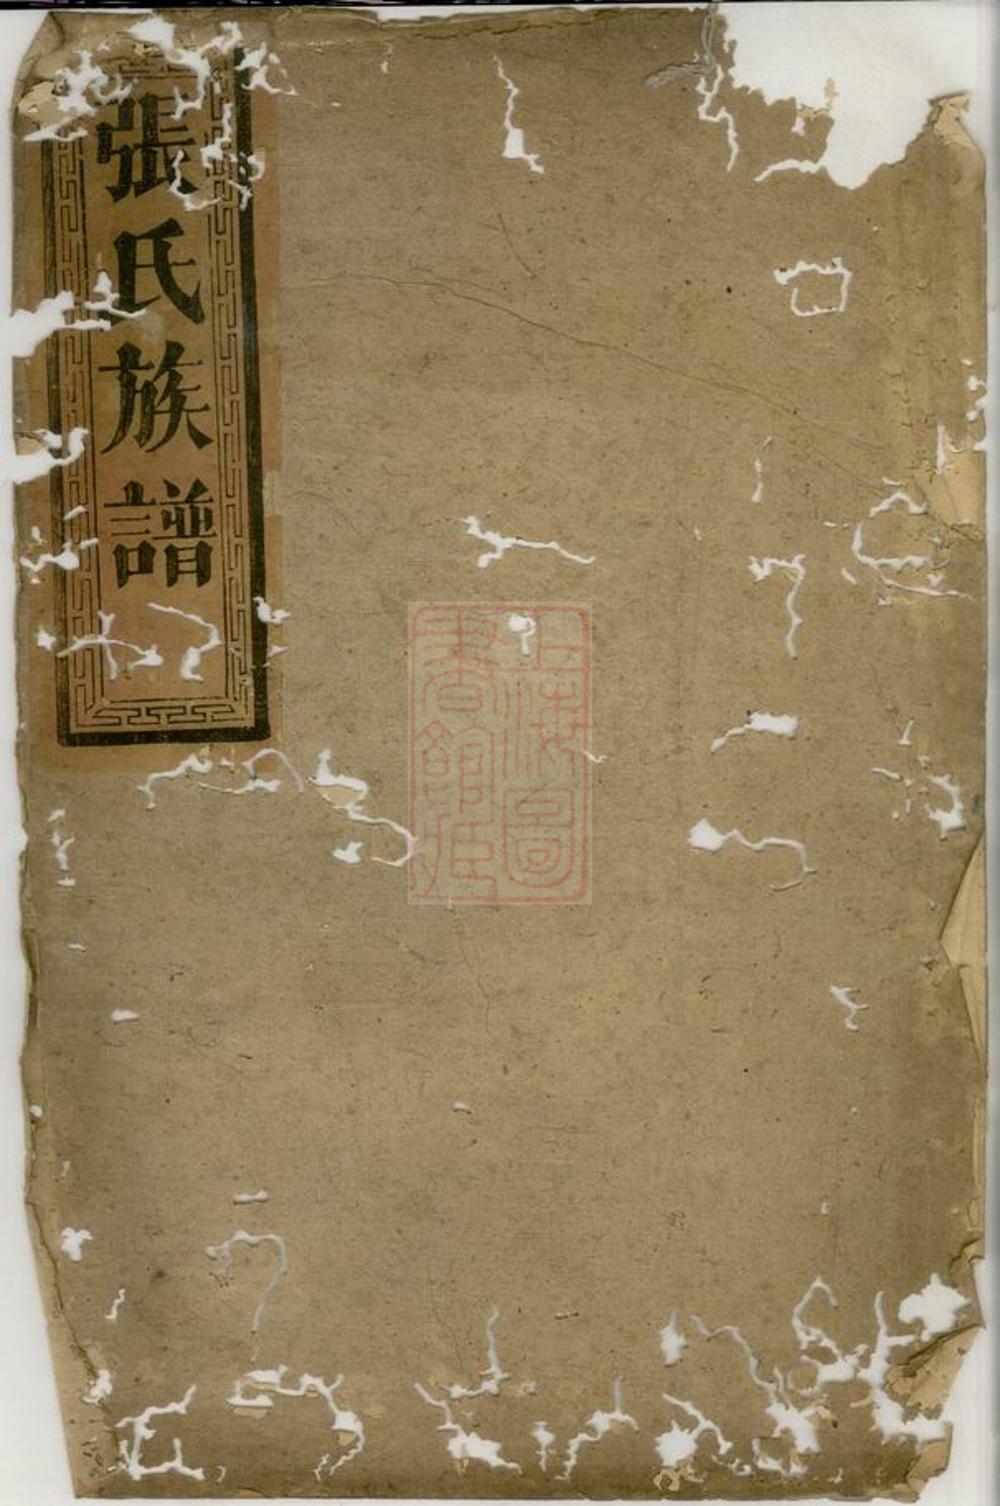 張氏族譜
上海圖書館藏